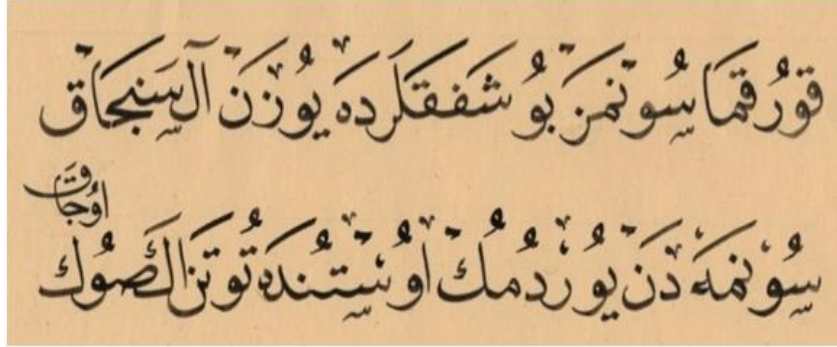 قوُرقمَا سُونمَز بوُ شَفَقلَردَه يُوزَن آل سَنجَاق
سُونمَه دَن يوُردُمُك اوُستُندَه تُوتَن اَك صُوك اوُجَاق